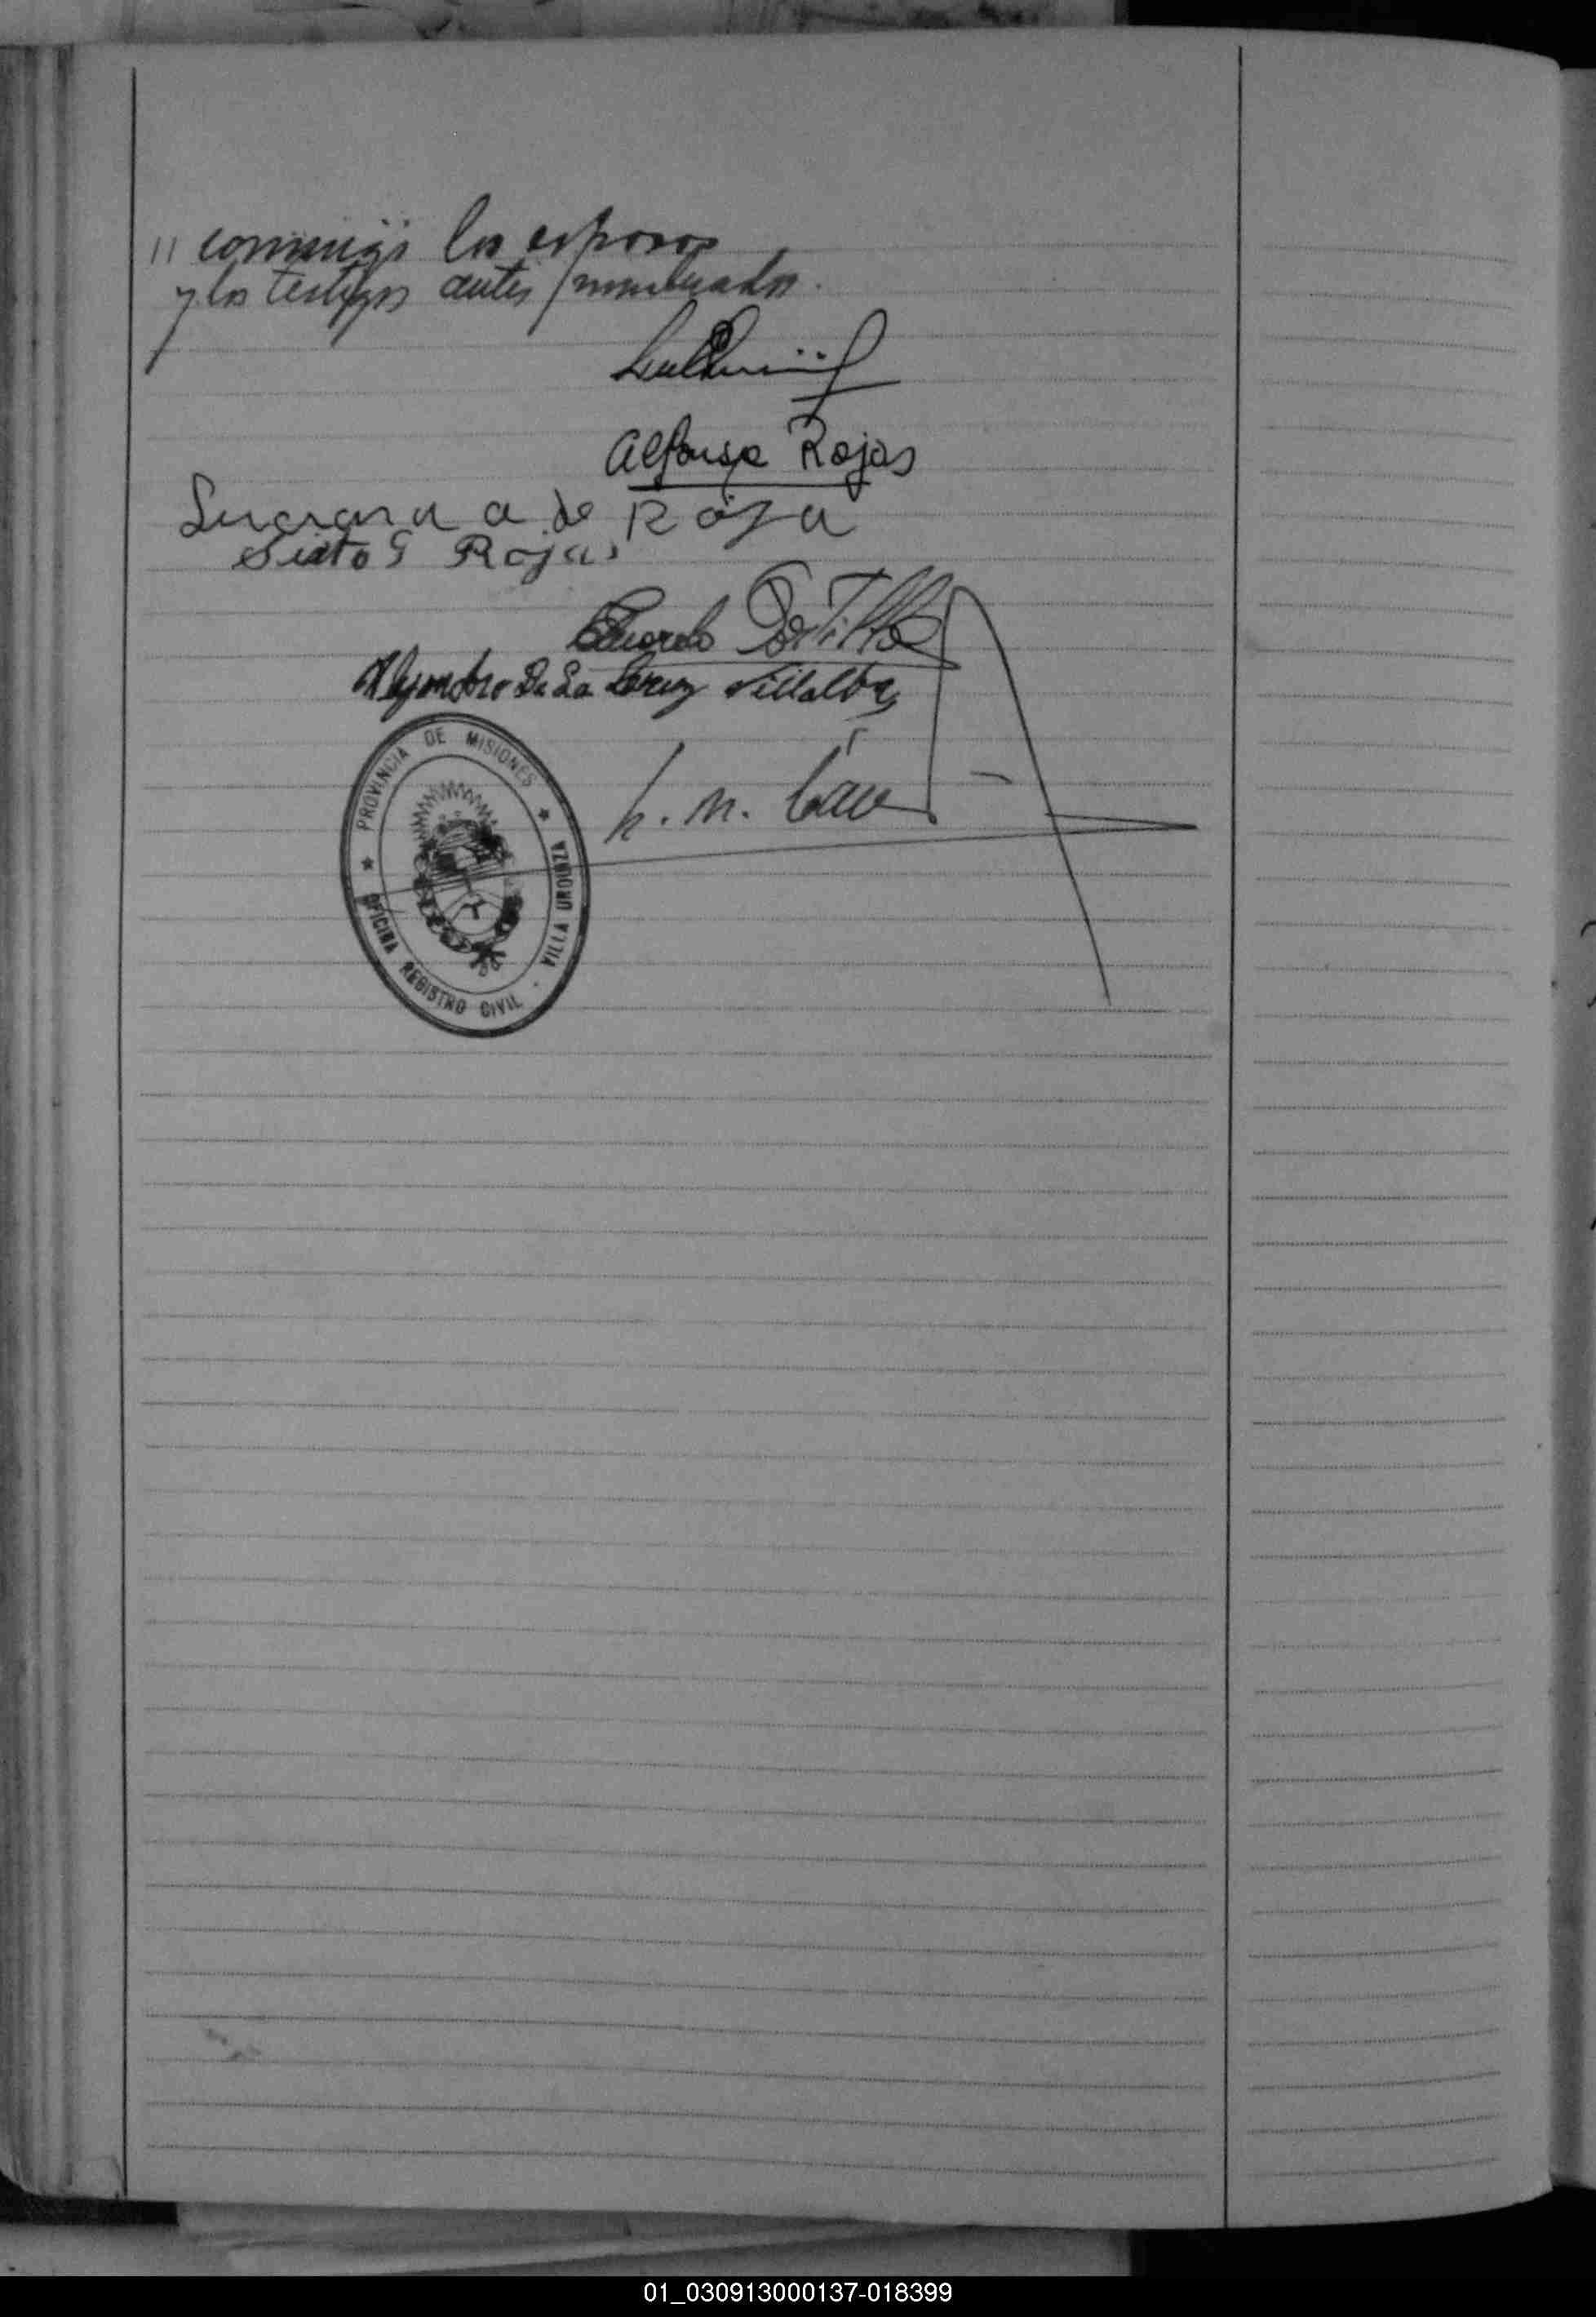 // conmigo los esposos
y los testigos antes nombrados.
Alfonso Rojas
a de Roja
Sixto G Rojas
Eduardo Portillo
Alejandro De La Cruz Villalba
h. m.
PROVINCIA DE MISIONES
OFICINA REGISTRO CIVIL - VILLA URQUIZA
01_030913000137-018399